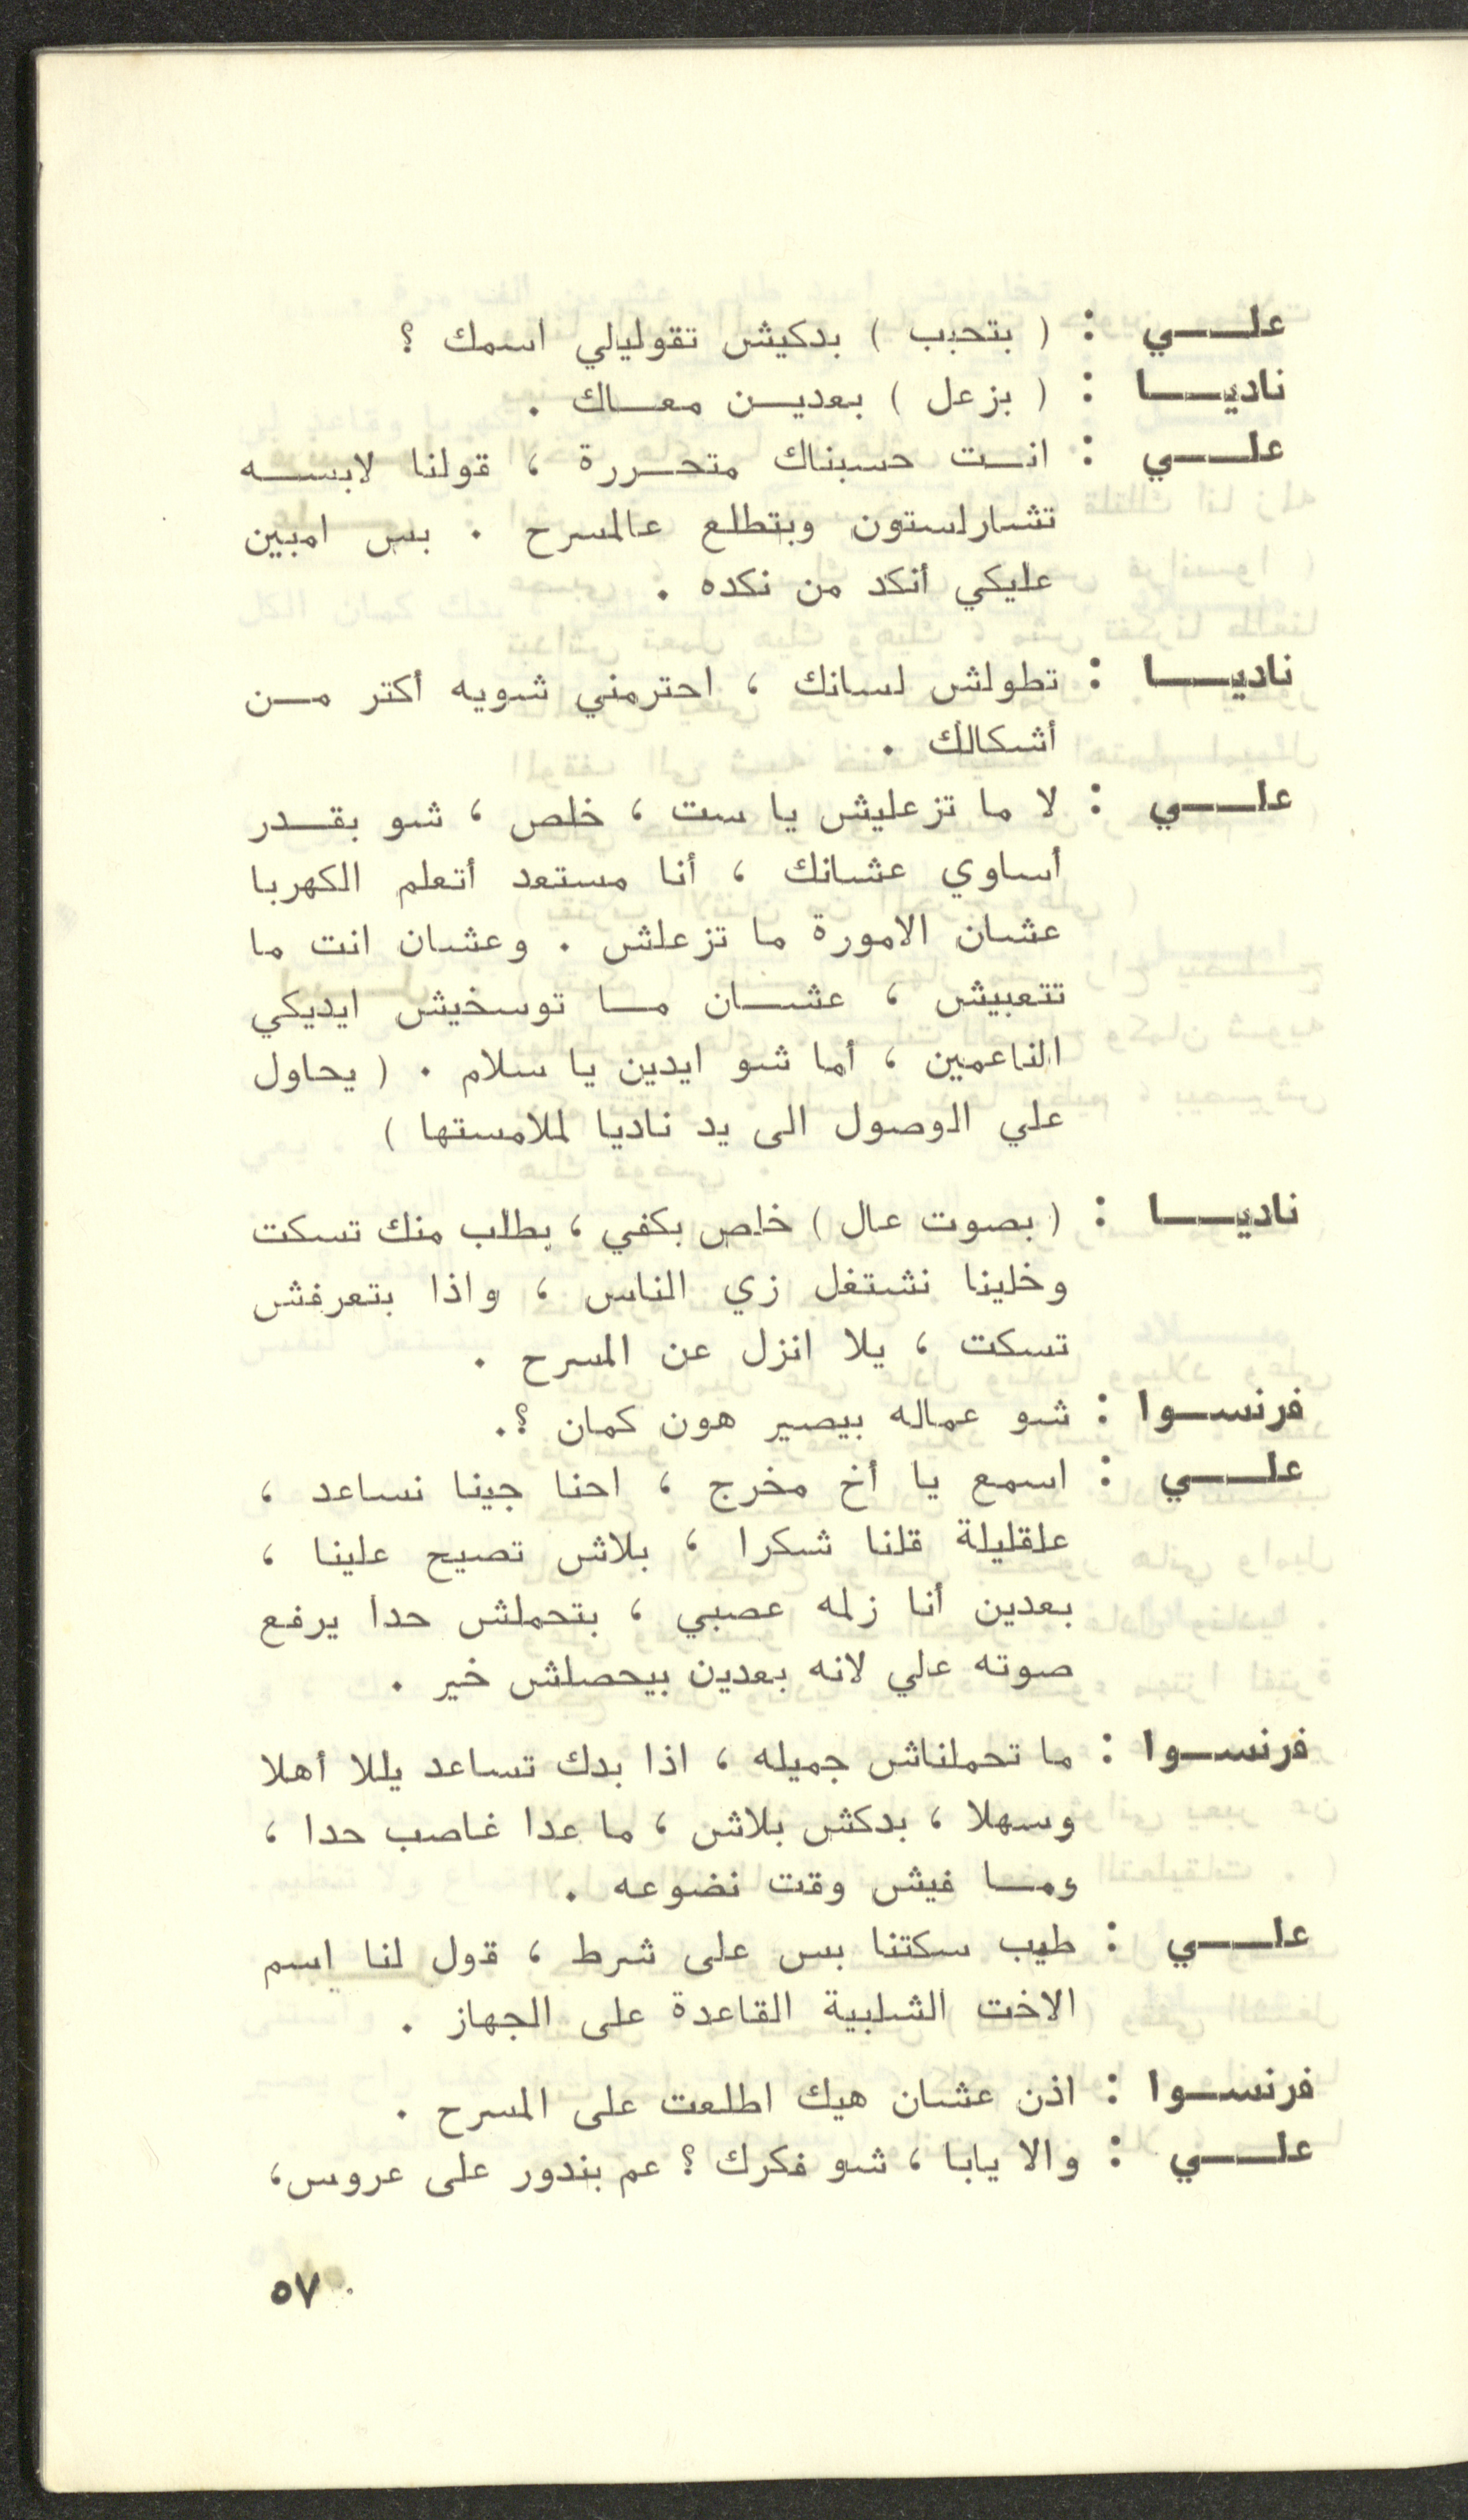 علـــي : ( بتحبب ) بدكيش تقوليلي اسمك ؟
ناديـــا : ( بزعل ) بعديـن معـاك .
علـــي : انـت حسبناك متحـررة ، قولنا لابسـه
تشارلستون وبتطلع عالمسرح . بس امبين
عليكي أنكد من نكده .
ناديـــا : تطولش لسانك ، احترمني شويه أكتر مـن
أشكالك .
علـــي : لا ما تزعليش يا ست ، خلص ، شو بقـدر
أساوي عشانك ، أنا مستعد أتعلم الكهربا
عشان الامورة ما تزعلش . وعشان انت ما
تتعبيش ، عشـان مـا توسخيش ايديكي
الناعمين ، أما شو ايدين يا سلام . ( يحاول
علي الوصول الى يد ناديا لملامستها )
ناديـــا : ( بصوت عال ) خلص بكفي ، بطلب منك تسكت
وخلينا نشتغل زي الناس ، واذا بتعرفش
تسكت ، يلا انزل عن المسرح .
فرنسـوا : شو عماله بيصير هون كمان ؟.
علـــي : اسمع يا أخ مخرج ، احنا جينا نساعد ،
علقليلة قلنا شكرا ، بلاش تصيح علينا ،
بعدين أنا زلمه عصبي ، بتحملش حدا يرفع
صوته علي لانه بعدين بيحصلش خير .
فرنسـوا : ما تحملناش جميله ، اذا بدك تساعد يللا أهلا
وسهلا ، بدكش بلاش ، ما عدا غاصب حدا ،
ومـا فيش وقت نضوعه .
علـــي : طيب سكتنا بس على شرط ، قول لنا اسم
الاخت الشلبية القاعدة على الجهاز .
فرنسـوا : اذن عشان هيك اطلعت على المسرح .
علـــي : والا يابا ، شو فكرك ؟ عم بندور على عروس،
٥٧